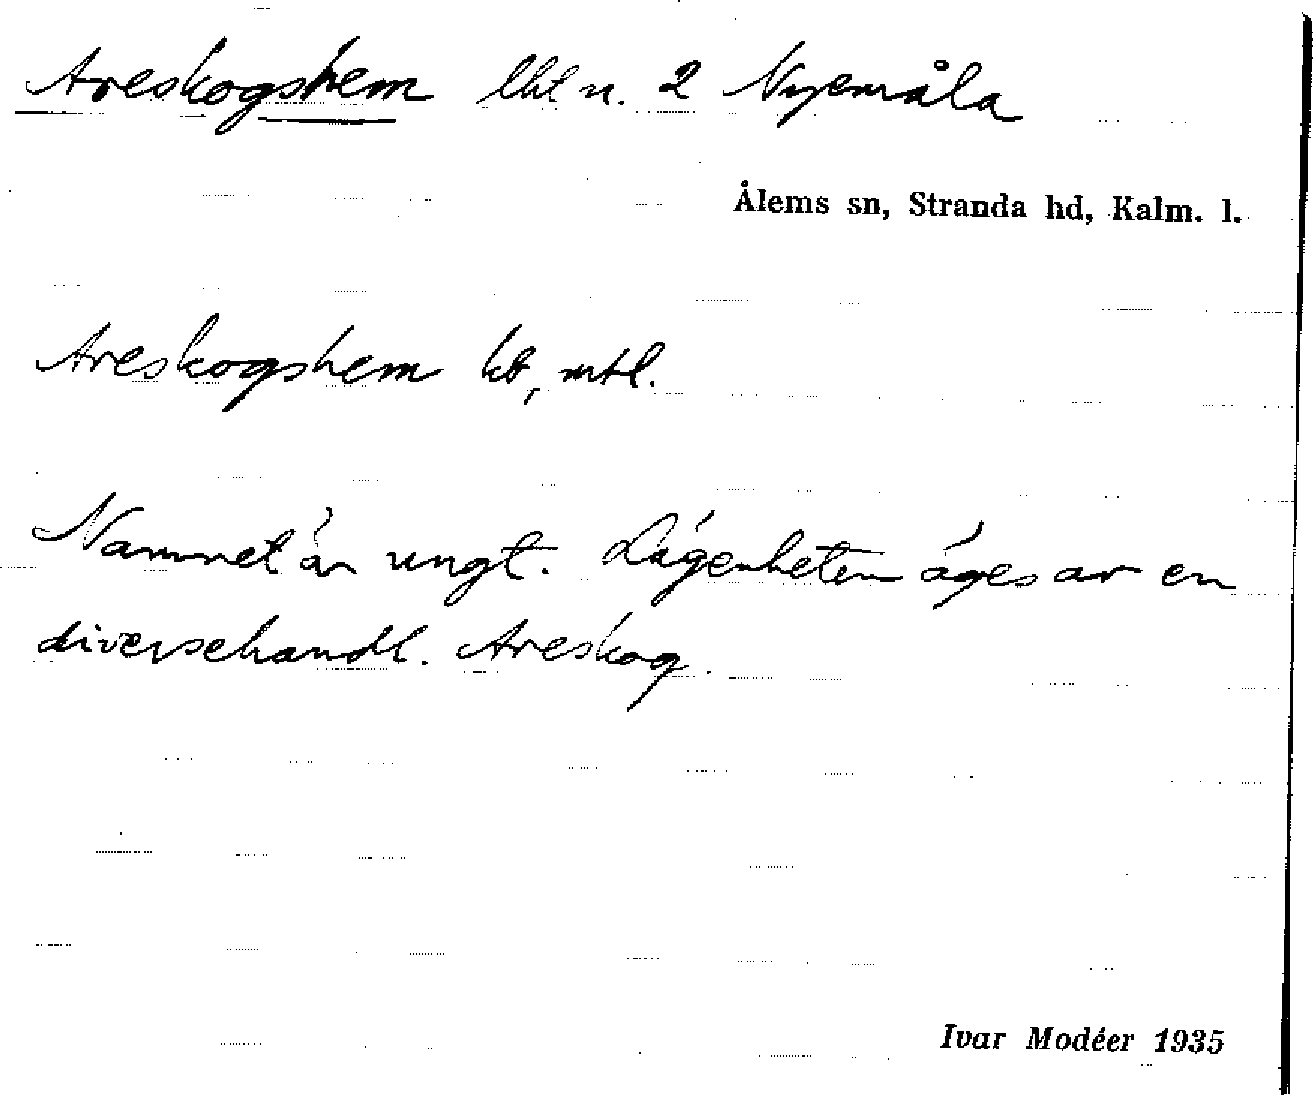 Areskogshem lht u. 2 Nyemåla
Ålems sn, Stranda hd, Kalm. l.
Areskogshem kb, mtl.
Namnet är ungt. Lägenheten äges av en
diversehandl. Areskog.
Ivar Modéer 1935